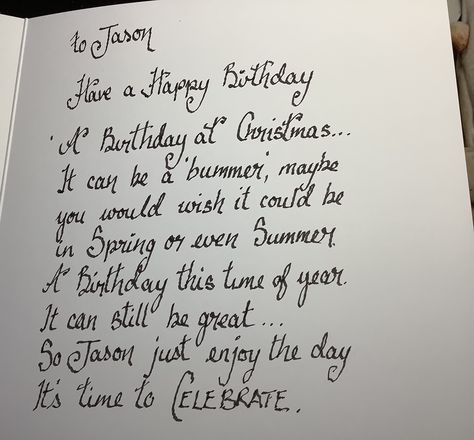 to Jason
Have a Happy Birthday
'A Birthday at Christmas...
It can be a 'bummer', maybe
you would wish it could be
in Spring or even Summer.
A Birthday this time of year.
It can still be great...
So Jason just enjoy the day
It's time to CELEBRATE.